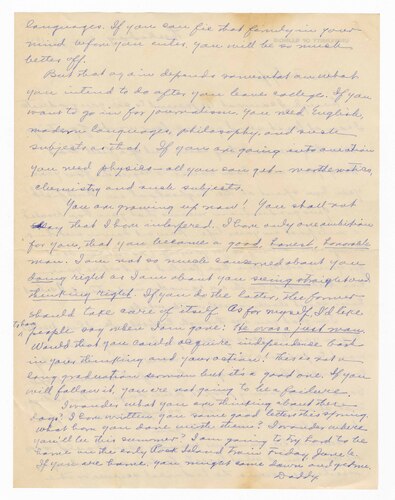 languages. If you can fix that firmly in your
mind before you enter, you will be so much
better off.
But that again depends somewhat on what
you intend to do after you leave college. If you
want to go in for journalism, you need English,
modern languages, philosophy, and such
subjects as that. If you are going into aviation
you need physics—all you can get—mathematics,
chemistry and such subjects.
You are growing up now! You shall not
say that I have interfered. I have only one ambition
for you, that you become a good, honest, honorable
man. I am not so much concerned about you
doing right as I am about you seeing straight and
thinking right. If you do the latter, the former
should take care of itself. As for myself, I'd like
to have people say when I am gone: He was a just man.
Would that you could acquire independence both
in your thinking and your action! This is not a
long graduation sermon but it's a good one. If you
will follow it, you're not going to be a failure.
I wonder what you are thinking about these
days? I have written you some good letters this spring.
What have you done with them? I wonder where
you'll be this summer? I am going to try hard to be
home on the only Rock Island train Friday, June 6.
If you are home, you might come down and get me.
Daddy